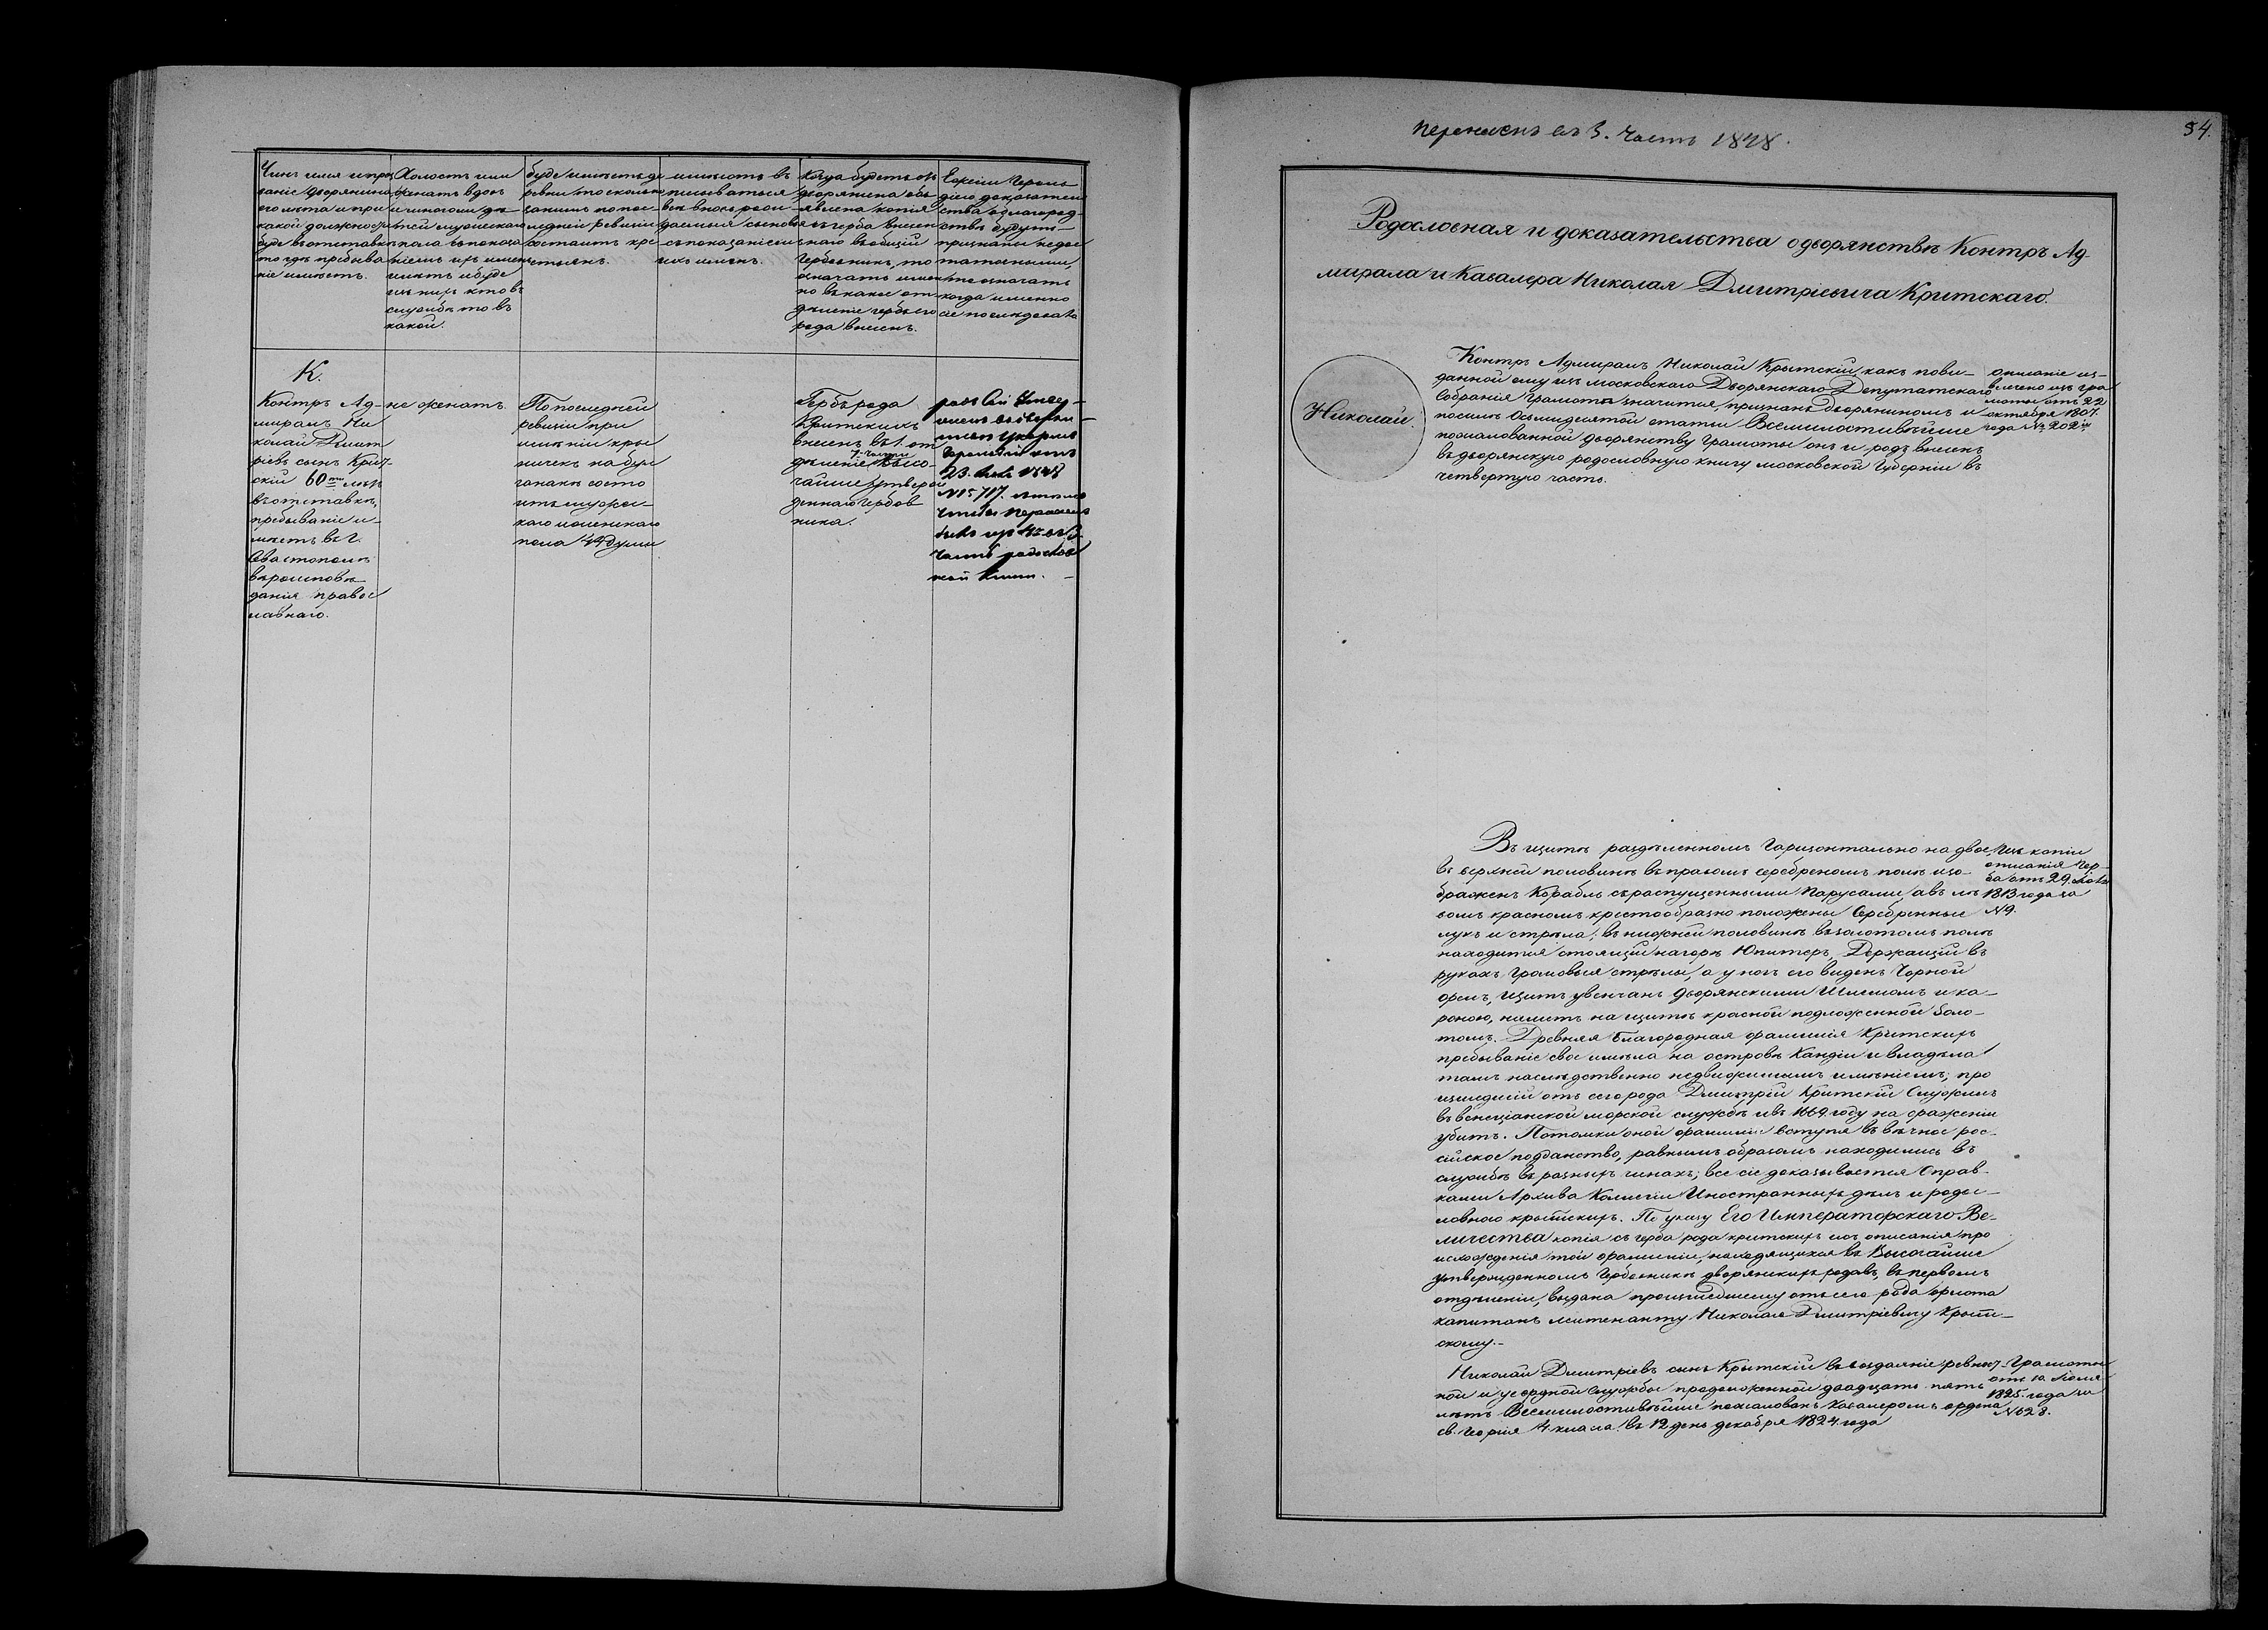 Чинъ имя и про
званіе дворянина
его лѣта и при
какой должности
буде въ отставкѣ
то гдѣ пребыва
ніе имѣетъ.
Холостъ или
женатъ вдовъ
и многоли дѣ
тей мужескаго
пола съ показа
ніемъ ихъ имянъ
и лѣтъ и буде
изъ нихъ кто въ
службѣ то въ
какой.
буде имѣетъ де
ревни то сколько
за нимъ по пос-
ледней ревизіи
состоитъ кре
стьянъ.
имѣютъ въ
писываться
всѣ вновь рож-
даемыя сыновья
съ показаніемъ
ихъ имянъ.
Когда будетъ отъ
дворянина объ
явлена копія
съ герба внесен
наго въ общій
Гербовникъ, то
означать имен
но въ какое от
дѣленіе гербъ его
рода внесенъ.
Ежели Героль
діею доказатель
ства о благород-
ствѣ будутъ
признаны недос
таточными,
то означать
когда именно
сіе послѣдовало
К.
Контръ Ад-
миралъ Ни
колай Дмит
ріевъ сынъ Крит-
скій 60ти лѣтъ
въ отставкѣ,
пребываніе и-
мѣетъ въ г.
Севастополѣ
вѣроисповѣ
данія правос
лавнаго.
не женатъ.
По последней
ревизіи при
имѣніи кры
ничек на бул
ганакѣ состо
итъ мужес-
каго и женскаго
пола 44 души
Гербъ рода
Критскихъ
внесенъ въ 1. от
дѣленіе 7. части Высо-
чайше утверж
деннаго гербов
ника.
родъ сей
Герольдіи отъ
23. 1848
№ 5717.
часть родослов
ной книги.
Перенесенъ въ 3. часть 1848.
54.
Родословная и доказательства о дворянствѣ Контръ Ад-
мирала и Кавалера Николая Дмитріевича Критскаго.
Николай.
Контръ Адмиралъ Николай Крытскій, какъ повы-
данной ему изъ московскаго Дворянскаго Депутатскаго
Собранія Грамоты значится, признанъ дворяниномъ и
по силѣ Осьмидесятой статьи Всемилостивѣйше
пожалованной дворянству Грамоты онъ и родъ внесенъ
въ дворянскую родословную книгу московской Губерніи въ
четвертую часть.
описаніе из-
влечено изъ гра
моты отъ 22
октября 1807.
года № 202м
Въ щитѣ раздѣленномъ горизонтально на двое,
въ верхней половинѣ въ правомъ серебреномъ полѣ изо-
браженъ Корабль съ распущенными парусами, а въ лѣ
вомъ красномъ крестообразно положены Серебренные
лукъ и стрѣла; въ нижней половинѣ въ золотомъ полѣ
находится стоящій на горѣ Юпитеръ, Держащій въ
рукахъ громовыя стрѣлы, а у ногъ его виденъ Черной
орелъ, щитъ увенчанъ дворянскими Шлемомъ и ко-
роною, наметъ на щитѣ красной подложенной золо-
томъ. Древняя благородная фамилія Критскихъ
пребываніе свое имѣла на островѣ Кандіи и владѣла
тамъ наслѣдственно недвижимымъ имѣніемъ; про
изшедшій отъ сего рода Дмитрій Критскій Служилъ
въ венеціанской морской службѣ и въ 1669. году на сраженіи
убитъ. Потомки оной фамиліи вступя въ вѣчное рос-
сійское подданство, равнымъ образомъ находились въ
службѣ въ разныхъ чинахъ; все сіе доказывается Справ-
ками Архива Коллегіи Иностранныхъ дѣлъ и родос-
ловною крытскихъ. По указу Его Императорскаго Ве-
личества копія съ герба рода критскихъ и съ описанія про
исхожденія той фамиліи, находящихся въ Высочайше
утвержденномъ Гербовникѣ дворянскихъ родовъ, въ первомъ
отдѣленіи, выдана произшедшему отъ сего рода флота
капитанъ лейтенанту Николаю Дмитріевичу Крыт-
скому.-
Изъ копіи
описанія Гер-
ба отъ 29.
1813 года за
№ 9.
Николай Дмитріевъ сынъ Крытскій въ воздаяніе ревност-
ной и усердной Службы продолженной двадцать пять
лѣтъ Всемилостивѣйше пожалованъ Кавалеромъ ордена
св. Георгія 4. класса въ 12 день декабря 1824. года
Грамоты
отъ 10. Іюля
1825. года за
№ 628.